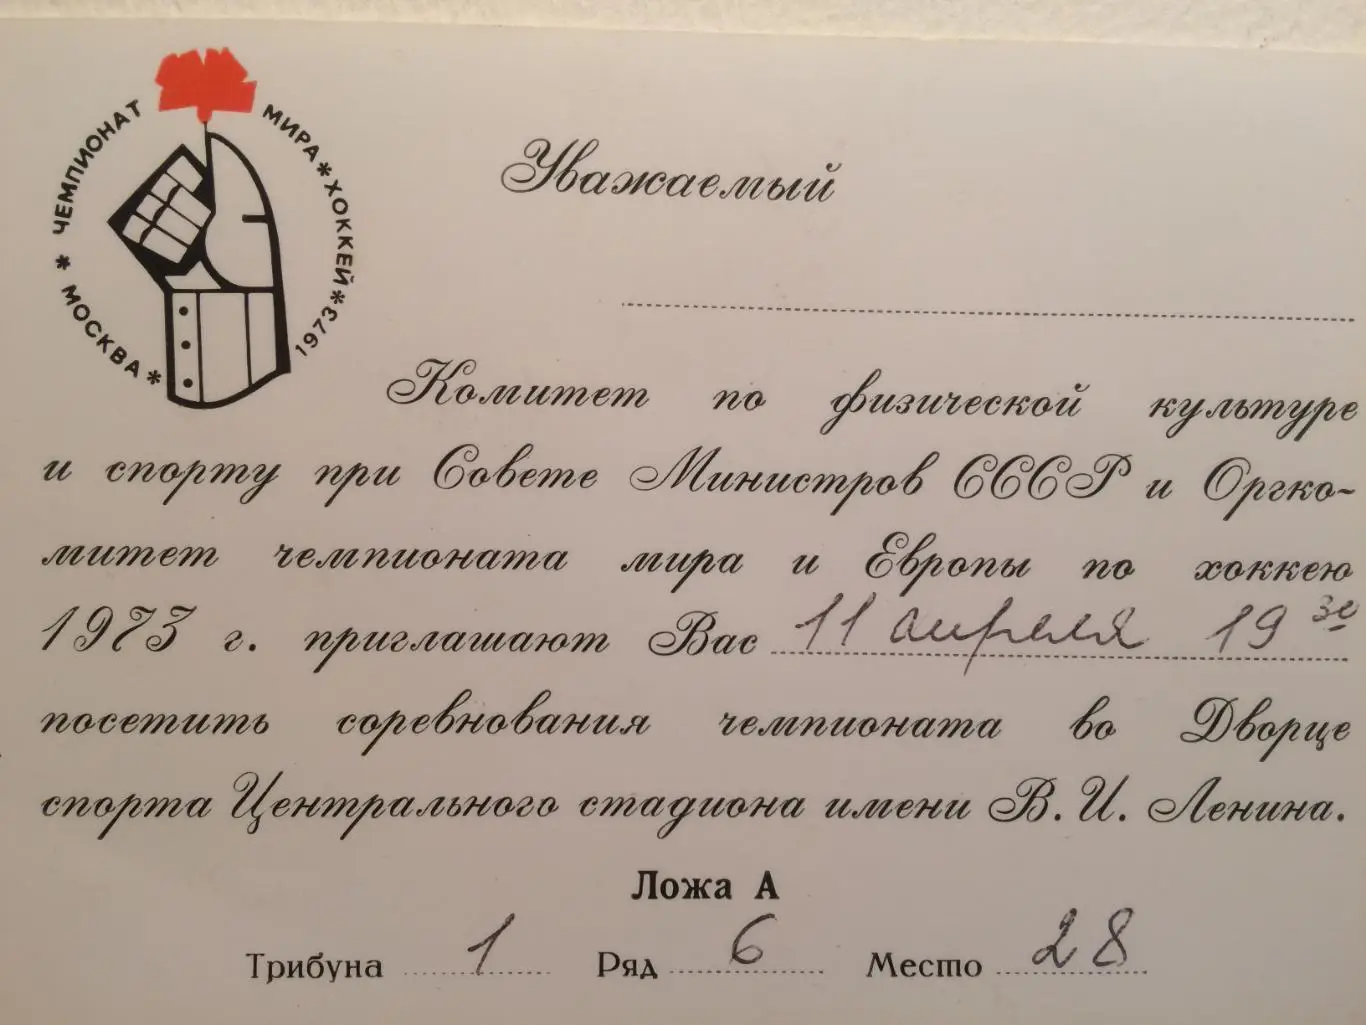 * МОСКВА * ЧЕМПИОНАТ МИРА * ХОККЕЙ * 1973 *
Уважаемый
Комитет по физической культуре
и спорту при Совете Министров СССР и Оргко-
митет чемпионата мира и Европы по хоккею
1973 г. приглашают Вас 11 апреля 19 30
посетить соревнования чемпионата во Дворце
спорта Центрального стадиона имени В. И. Ленина.
Ложа А
Трибуна 1 Ряд 6 Место 28